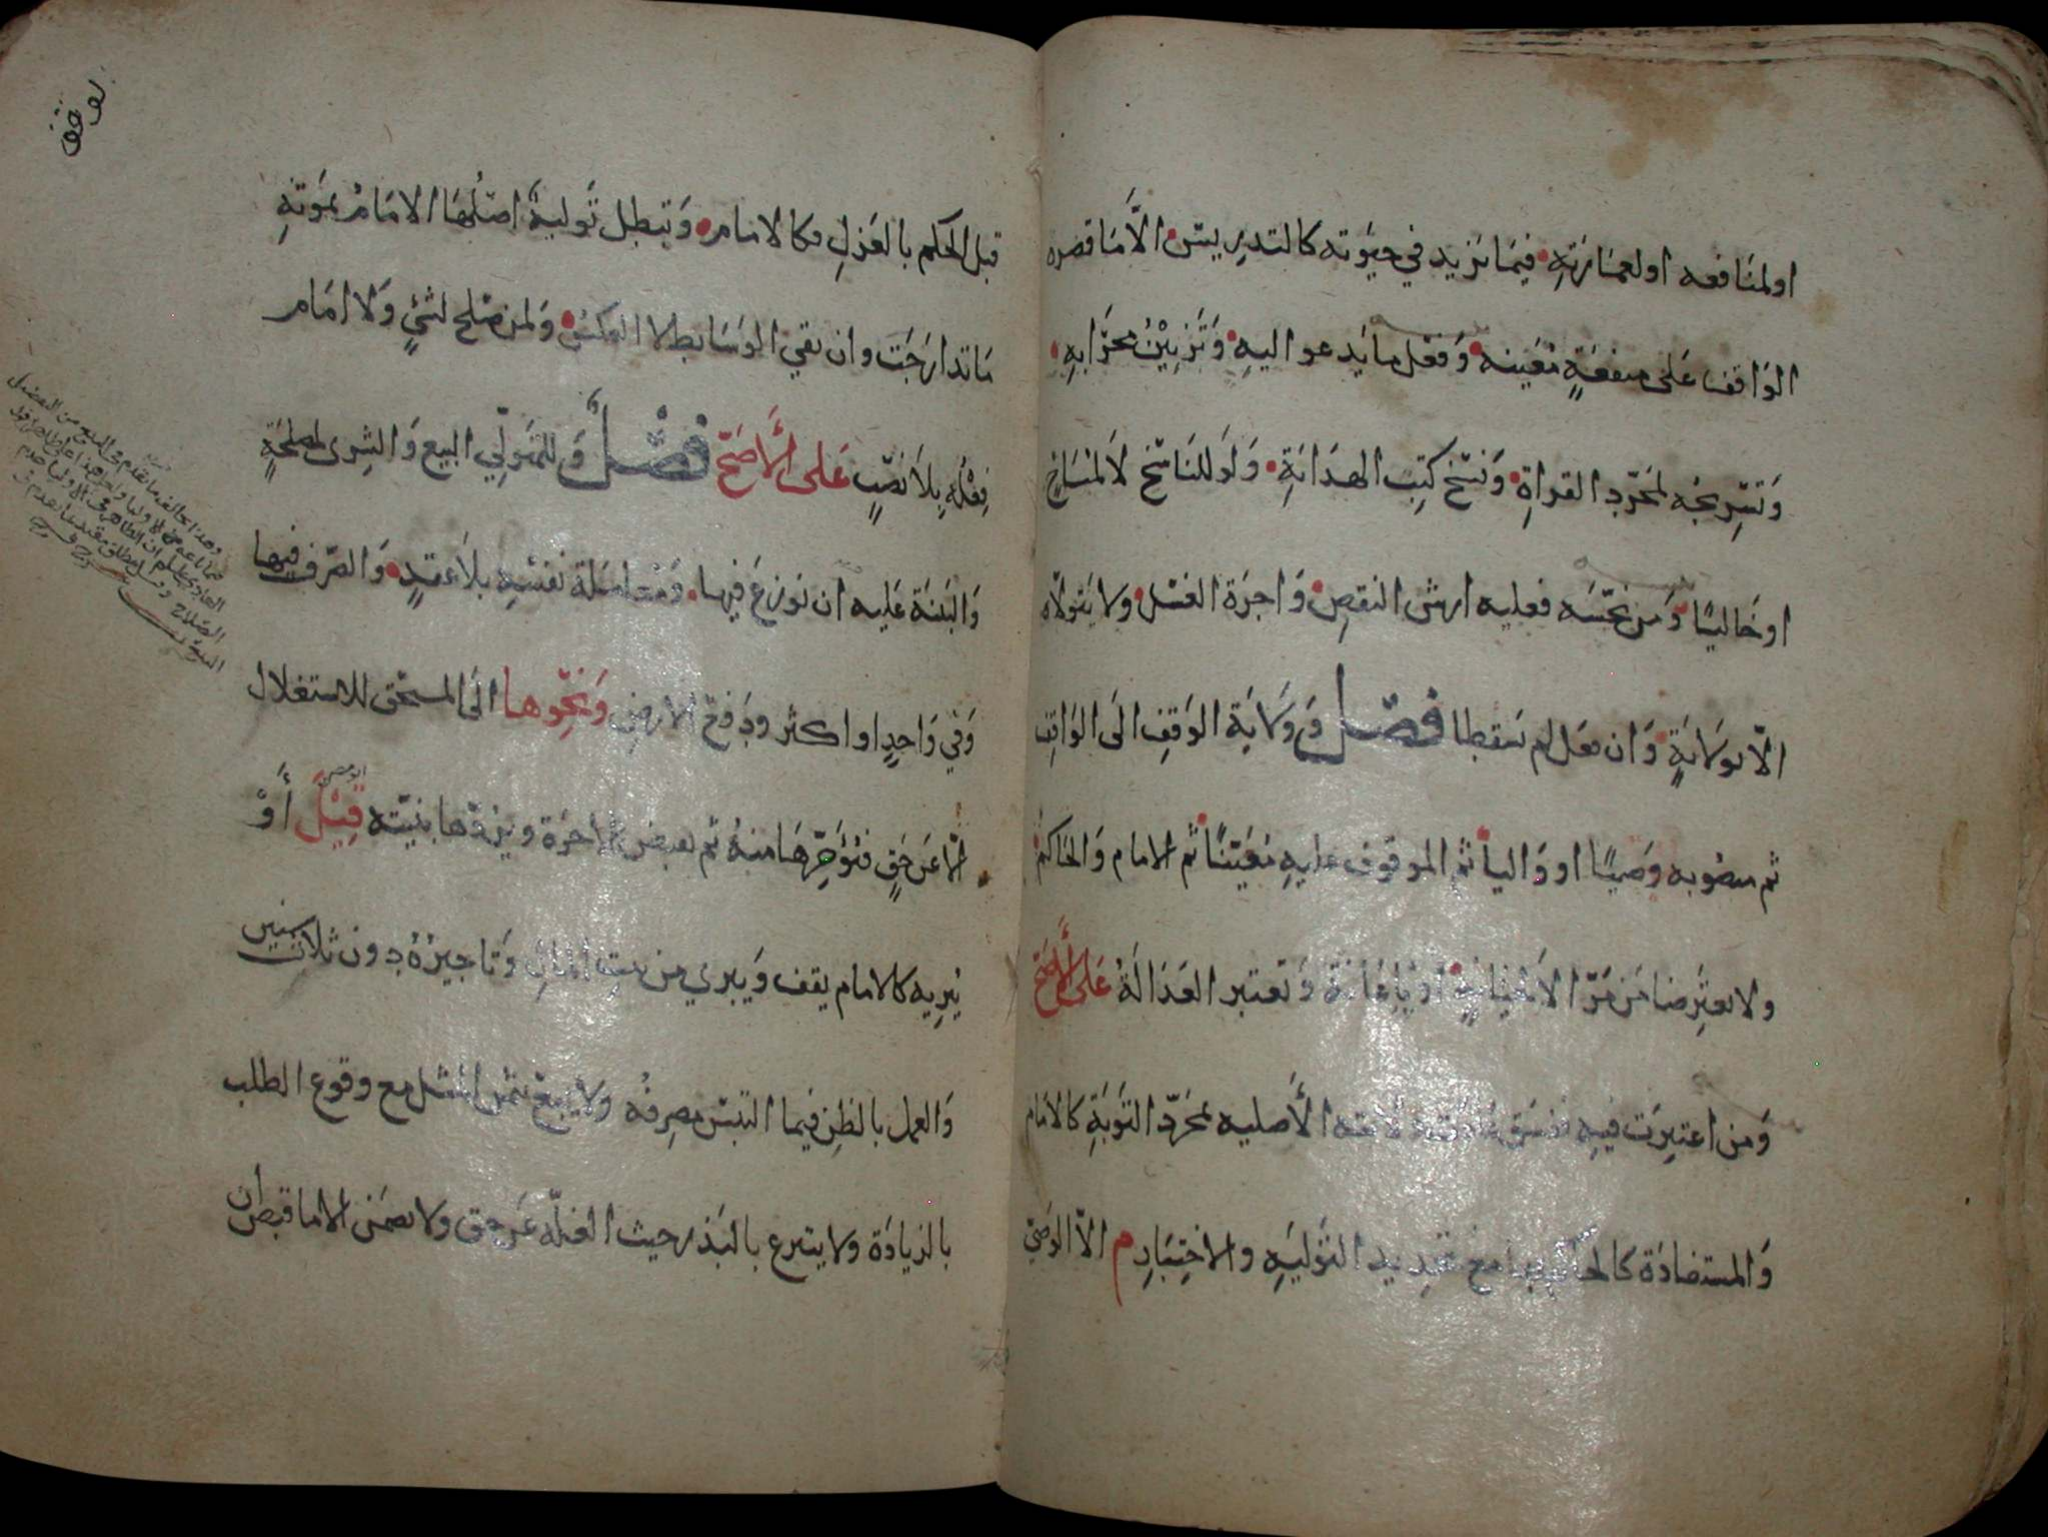 او لمنافعه او لعمارته فيما يزيد في حيوته كالتدريس الا ما قصره
الواقف على منفعة معينه وفعل ما يدعو اليه وتزيين محرابه
وتسريجه لمجرد القراة ونسخ كتب الهداية ولو للناسخ لا لمباح
او خاليا ومن نجسه فعليه ارش النقص واجرة الغسل ولا يتولاه
الا بولاية وان فعل لم يسقطا فصل وولاية الوقف الى الواقف
ثم منصوبه وصيا او واليا ثم الموقوف عليه معينا ثم الامام والحاكم
ولا يعترضان من مر الا لخيانة او باعانة وتعتبر العدالة على الأصح
ومن اعتبرت فيه ففسق عادت ولايته الأصليه بمجرد التوبة كالامام
والمستفادة كالحاكم بها مع تجديد التولية والاختبار م الا الوصي
قبل الحكم بالعزل فكالامام وتبطل تولية اصلها الامام بموته
ما تدارجت وان بقي الوسايط لا العكس ولمن صلح لشئ ولا امام
فعله بلا نصب على الأصح فصل وللمتولي البيع والشرى لمصلحة
والبينة عليه ان نوزع فيها ومعاملة نفسه بلا عقد والصرف فيها
وفي واحد او اكثر ودفع الارض ونحوها الى المستحق للاستغلال
الا عن حق فيؤجرها منه ثم يقبض الاجرة ويردها بنيته قيل أو
يبريه كالامام يقف ويبري من بيت المال وتاجيره دون ثلاث سنين
والعمل بالظن فيما التبس مصرفه ولا يبيع بثمن المثل مع وقوع الطلب
بالزيادة ولا يتبرع بالبذر حيث الغلة عن حق ولا يضمن الا ما قبض ان